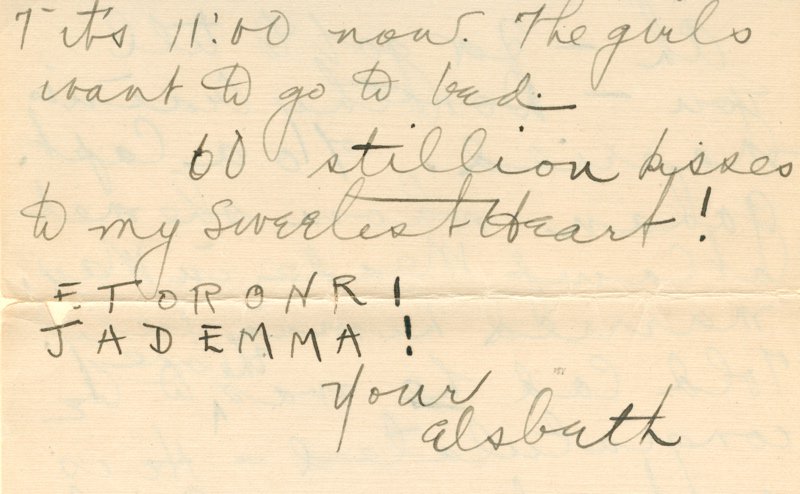 T it's 11:00 now. The girls
want to go to bed.
60 stillion kisses
to my Sweetest Heart!
E.TORONR!
JADEMMA!
Your
elsbeth